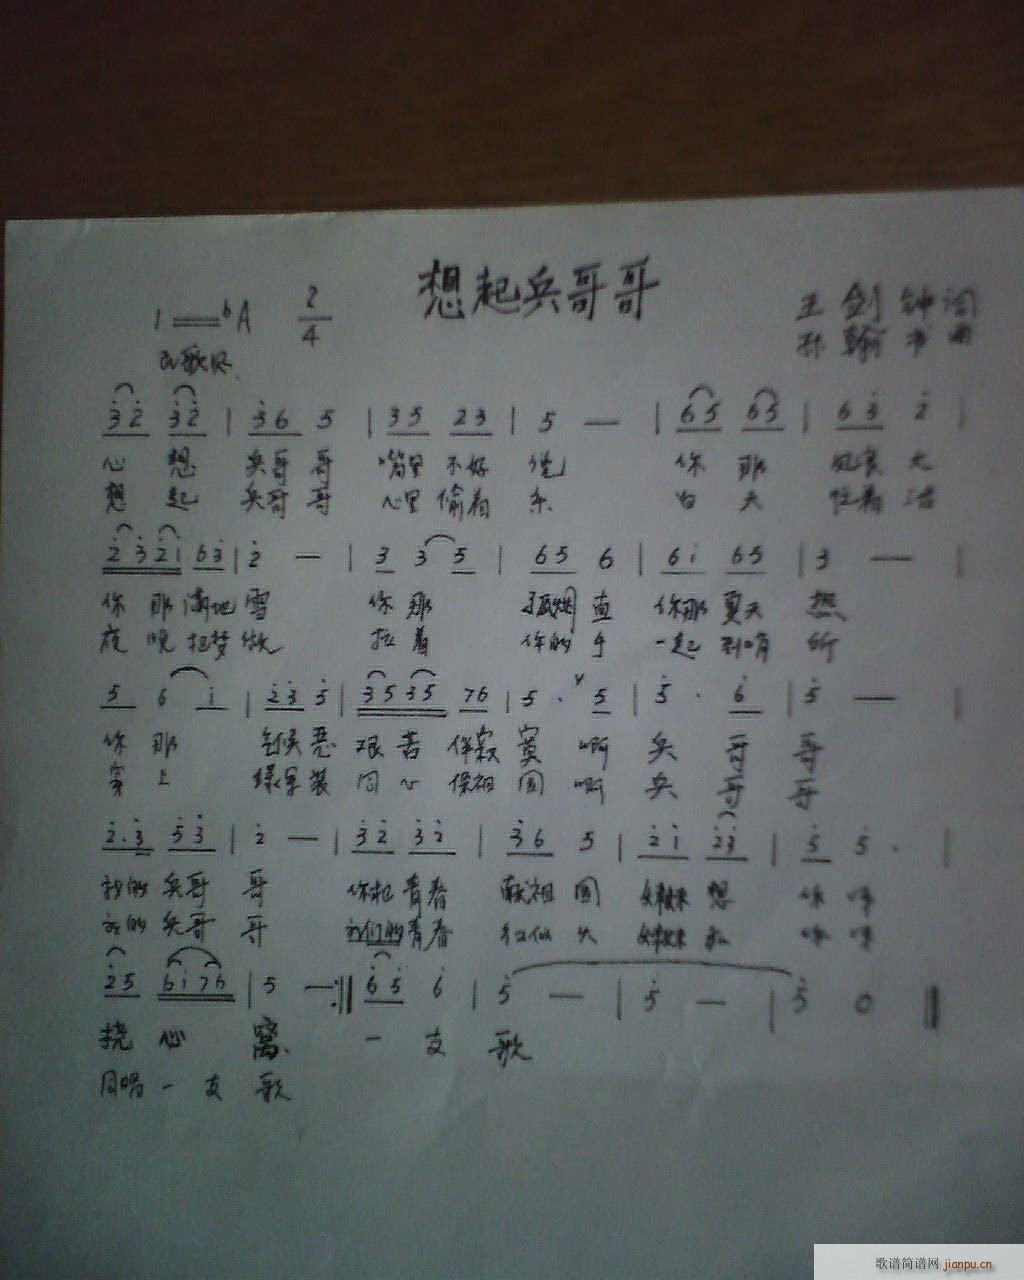 想起兵哥哥
1=♭A 2/4
王剑钟词
孙翰书曲
民歌风
3̇2̇ 3̇2̇ | 3̇6 5 | 35 23 | 5 — | 65 65 | 63̇ 2̇ |
心 想 兵哥哥 嘴里不好说 你 那 风浪大
想 起 兵哥哥 心里偷着乐 白 天 忙着活
2̇3̇2̇1̇ 63̇ | 2̇ — | 3 3 5 | 65 6 | 61̇ 65 | 3 — |
你那满地雪 你那 孤烟直 你那夏天热
夜晚把梦做 拉着 你的手 一起到哨所
5 6 1̇ | 2̇3̇ 5̇ | 3535 76 | 5 · ∨ 5 | 5̇ · 6̇ | 5̇ — |
你那 气候恶 艰苦伴寂寞 啊 兵哥哥
穿上 绿军装 同心保祖国 啊 兵哥哥
2̇·3̇ 5̇3̇ | 2̇ — | 3̇2̇ 3̇2̇ | 3̇6 5 | 2̇1̇ 2̇3̇ | 5̇ 5̇ · |
我的兵哥哥 你把青春 献祖国 妹妹想 你
我的兵哥哥 我们的青春 红似火 妹妹和 你
2̇5 6176 | 5 — :‖ 6̇5̇ 6̇ | 5̇ — | 5̇ — | 5̇ 0 ‖
挠心窝 一支歌
同唱一支歌
歌谱简谱网 jianpu.cn